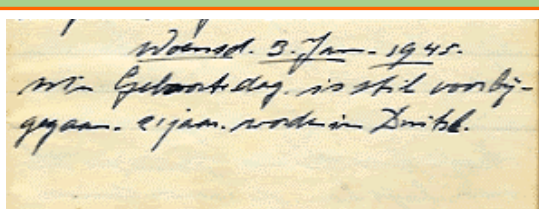 Woensd. 3. Jan. 1945.
mijn Geboortedag is stil voorbij-
gegaan. 21 jaar. worden in Duitsl.